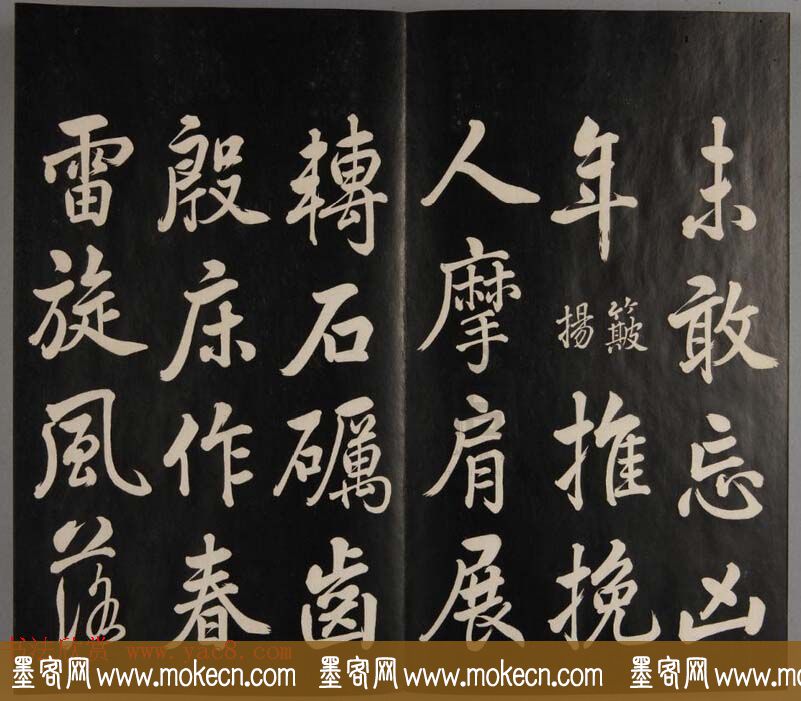 未敢忘凶
年簸揚推挽
人摩肩展
轉石礪齒
殷床作春
雷旋風落
书法欣赏 www.yac8.com
墨客网 www.mokecn.com 墨客网 www.mokecn.com 墨客网 www.moke